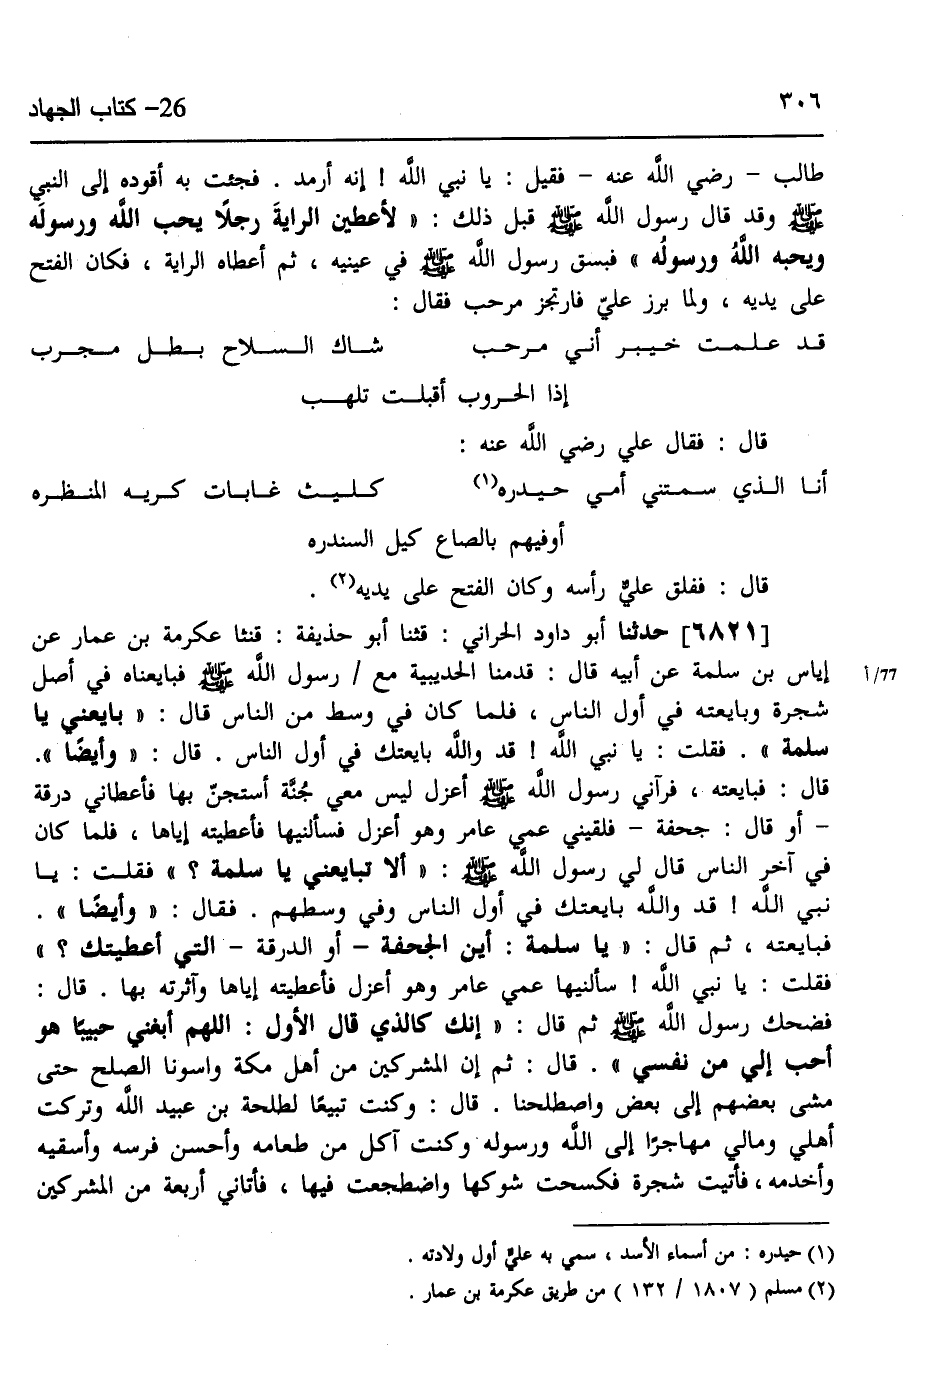 ٣٠٦
26- كتاب الجهاد
طالب - رضي اللَّه عنه - فقيل : يا نبي اللَّه ! إنه أرمد . فجئت به أقوده إلى النبي
ﷺ وقد قال رسول اللَّه ﷺ قبل ذلك : « لأعطين الرايةَ رجلًا يحب اللَّه ورسولَه
ويحبه اللَّهُ ورسولُه » فبسق رسول اللَّه ﷺ في عينيه ، ثم أعطاه الراية ، فكان الفتح
على يديه ، ولما برز عليّ فارتجز مرحب فقال :
قد علمت خيبر أني مرحب شاك السلاح بطل مجرب
إذا الحروب أقبلت تلهب
قال : فقال علي رضي اللَّه عنه :
أنا الذي سمتني أمي حيدره(١) كليث غابات كريه المنظره
أوفيهم بالصاع كيل السندره
قال : ففلق عليٌّ رأسه وكان الفتح على يديه(٢) .
[٦٨٢١] حدثنا أبو داود الحراني : قثنا أبو حذيفة : قنثا عكرمة بن عمار عن
إياس بن سلمة عن أبيه قال : قدمنا الحديبية مع / رسول اللَّه ﷺ فبايعناه في أصل
77/أ
شجرة وبايعته في أول الناس ، فلما كان في وسط من الناس قال : « بايعني يا
سلمة » . فقلت : يا نبي اللَّه ! قد واللَّه بايعتك في أول الناس . قال : « وأيضًا ».
قال : فبايعته ، فرآني رسول اللَّه ﷺ أعزل ليس معي جُنَّة أستجنّ بها فأعطاني درقة
- أو قال : جحفة - فلقيني عمي عامر وهو أعزل فسألنيها فأعطيته إياها ، فلما كان
في آخر الناس قال لي رسول اللَّه ﷺ : « ألا تبايعني يا سلمة ؟ » فقلت : يا
نبي اللَّه ! قد واللَّه بايعتك في أول الناس وفي وسطهم . فقال : « وأيضًا » .
فبايعته ، ثم قال : « يا سلمة : أين الجحفة - أو الدرقة - التي أعطيتك ؟ »
فقلت : يا نبي اللَّه ! سألنيها عمي عامر وهو أعزل فأعطيته إياها وآثرته بها . قال :
فضحك رسول اللَّه ﷺ ثم قال : « إنك كالذي قال الأول : اللهم أبغني حبيبًا هو
أحب إلي من نفسي » . قال : ثم إن المشركين من أهل مكة واسونا الصلح حتى
مشى بعضهم إلى بعض واصطلحنا . قال : وكنت تبيعًا لطلحة بن عبيد اللَّه وتركت
أهلي ومالي مهاجرًا إلى اللَّه ورسوله وكنت آكل من طعامه وأحسن فرسه وأسقيه
وأخدمه ، فأتيت شجرة فكسحت شوكها واضطجعت فيها ، فأتاني أربعة من المشركين
(١) حيدره : من أسماء الأسد ، سمي به عليٌّ أول ولادته .
(٢) مسلم ( ١٨٠٧ / ١٣٢ ) من طريق عكرمة بن عمار .